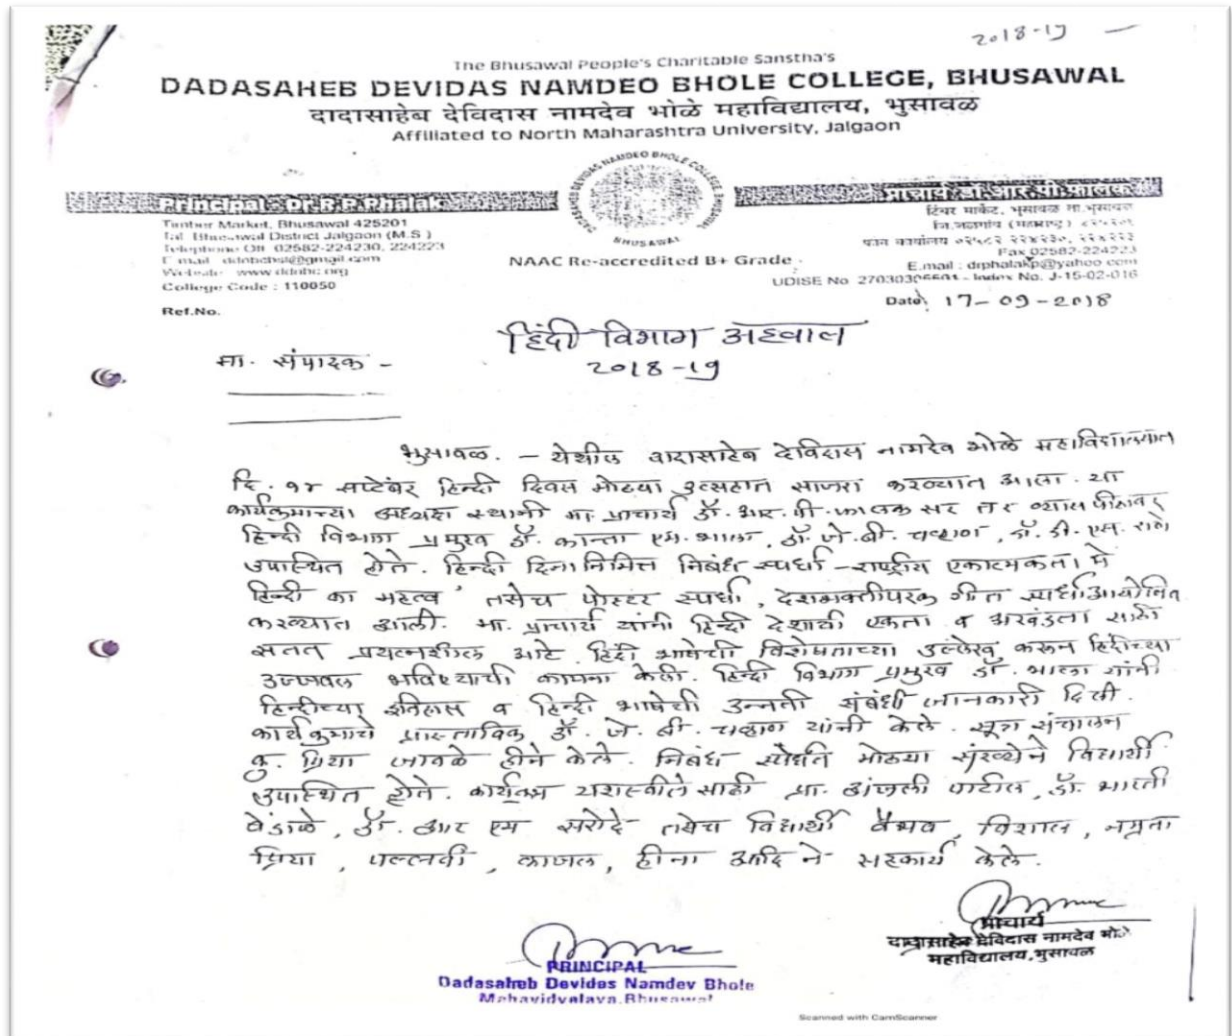 2018-19
The Bhusawal People's Charitable Sanstha's
DADASAHEB DEVIDAS NAMDEO BHOLE COLLEGE, BHUSAWAL
दादासाहेब देविदास नामदेव भोळे महाविद्यालय, भुसावळ
Affiliated to North Maharashtra University, Jalgaon
DADASAHEB DEVIDAS NAMDEO BHOLE COLLEGE
BHUSAWAL
Principal : Dr R.P.Phalak
Timber Market, Bhusawal 425201
Tal. Bhusawal District Jalgaon (M.S.)
Telephone Off. 02582-224230, 224223
E.mail
Website www.ddnbc.org
College Code : 110050
Ref.No.
NAAC Re-accredited B+ Grade
प्राचार्य डॉ.आर.पी.फालक
टिंबर मार्केट, भुसावळ ता.भुसावळ
जि.जळगांव (महाराष्ट्र) ४२५२०१
फोन कार्यालय ०२५८२ २२४२३०, २२४२२३
Fax 02582-224223
E.mail : drphalakp@yahoo.com
UDISE No Index No. J-15-02-016
Date 17-09-2018
हिंदी विभाग अहवाल
2018-19
मा. संपादक -
भुसावळ. - येथील दादासाहेब देविदास नामदेव भोळे महाविद्यालयात
दि. १४ सप्टेंबर हिन्दी दिवस मोठ्या उत्साहात साजरा करण्यात आला. या
कार्यक्रमाच्या अध्यक्ष स्थानी मा. प्राचार्य डॉ. आर. पी. फालक सर तर व्यास पीठावर
हिन्दी विभाग प्रमुख डॉ. कान्ता एम. भाला, डॉ. जे. बी. चव्हाण, डॉ. डी. एस.
उपास्थित होते. हिन्दी दिनानिमित्त निबंध स्पर्धा - राष्ट्रीय एकात्मकता मे
हिन्दी का महत्व' तसेच पोस्टर स्पर्धा, देशभक्तीपरक गीत स्पर्धा आयोजित
करण्यात आली. मा. प्राचार्य यांनी हिन्दी देशाची एकता व अखंडता साठी
सतत प्रयत्नशील आहे. हिंदी भाषेची विशेषताच्या उल्लेख करून हिंदीच्या
उज्जवल भविष्याची कामना केली. हिन्दी विभाग प्रमुख डॉ. भाला यांनी
हिन्दीच्या इतिहास व हिन्दी भाषेची उन्नती संबंधी जानकारी दिली.
कार्यक्रमाचे प्रास्ताविक डॉ. जे. बी. चव्हाण यांनी केले. सूत्र संचालन
कु. प्रिया जावळे हीने केले. निबंध स्पर्धेत मोठया संख्येने विद्यार्थी
उपास्थित होते. कार्यक्रम यशस्वीते साठी प्रा. अंजली पाटील, डॉ. भारती
बेंडाळे, डॉ. आर एम सरोदे तसेच विद्यार्थी वैभव, विशाल, नम्रता
प्रिया, पल्लवी, काजल, हीना आदि ने सहकार्य केले.
प्राचार्य
दादासाहेब देविदास नामदेव भोळे
महाविद्यालय, भुसावळ
PRINCIPAL
Dadasaheb Devidas Namdev Bhole
Mahavidyalaya, Bhusawal
Scanned with CamScanner